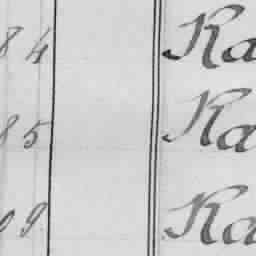 84 Ka
85 Ka
09 Ka